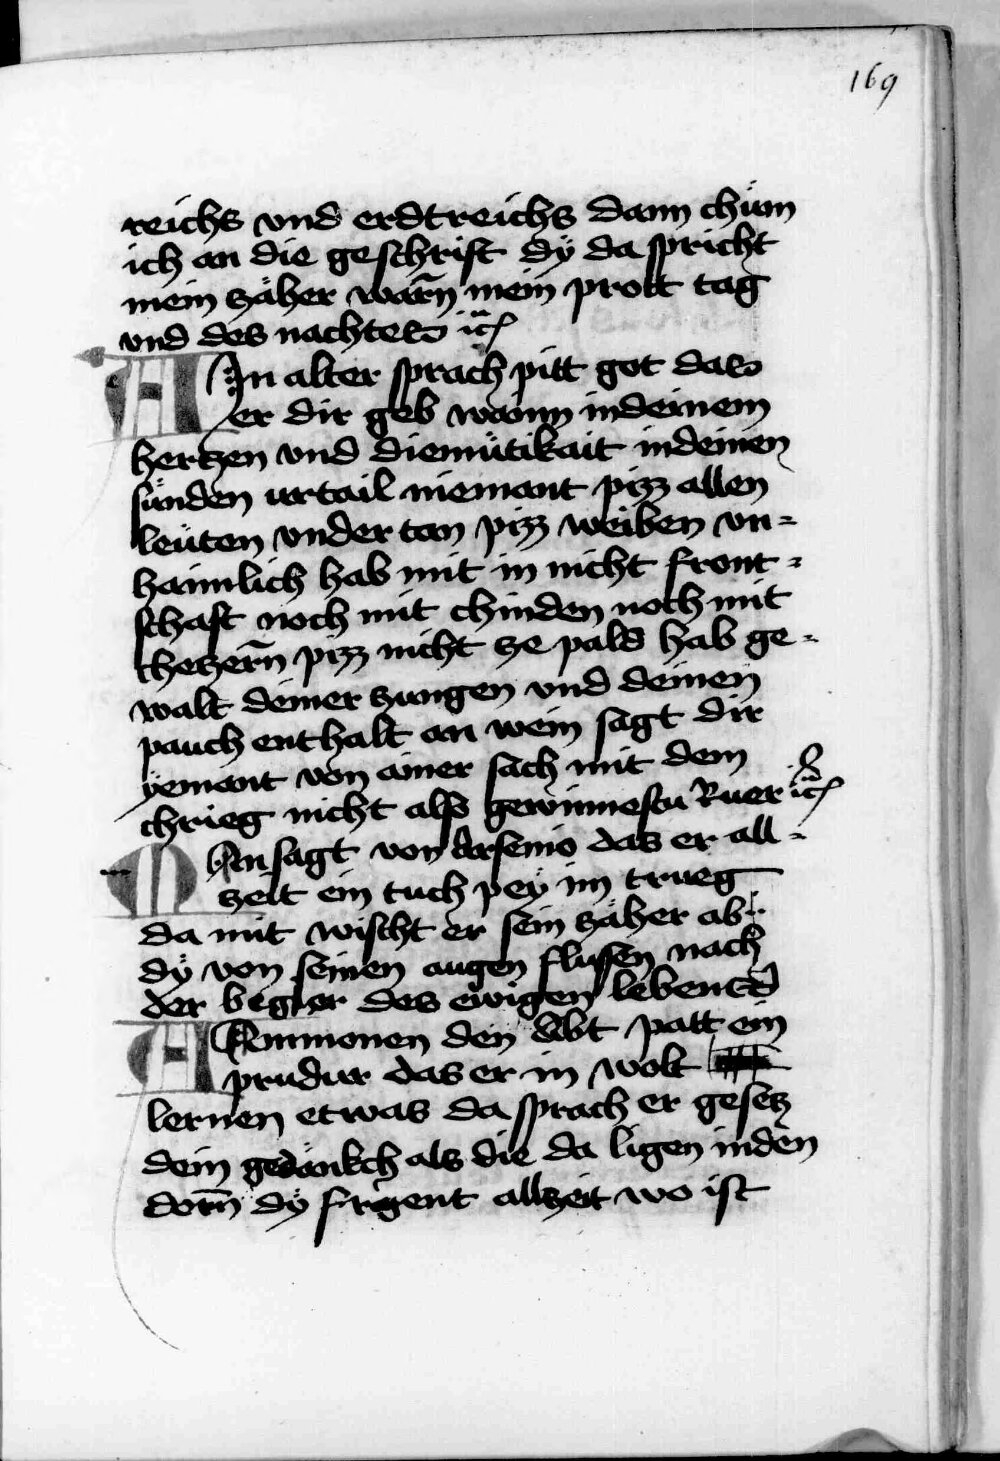 169
reichs vnd erdtreichs dann chüm
ich an die geschrift dÿ da spricht
mein zäher warn̄ mein prott tag
vnd des nachtes ꝛc̄
AIn alter sprach pitt got das
er dir geb wainn in deinem
hertzen vnd diemütikait in deinen
sünden vrtail niemant pizz allen
leüten vnder tan pizz weiben vn=
haimlich hab mit in nicht front=
schaft noch mit chinden noch mit
chetzern̄ pizz nicht ze pald hab ge=
walt deiner zungen vnd deinen
pauch enthalt an wein sagt dir
yemant von ainer sach mit dem
chrieg nicht also gewinnestu Ruer ꝛc̄
MAn sagt von Arsenio das er all=
zeit ein tuch peÿ im trueg
da mit wischt er sein zäher ab
dÿ von seinen augen flussen nach
der begier des ewigen lebents
AAmmonen den Abt patt ein
prudur das er in wolt
lernen etwas da sprach er gesetz
dein gedänkch als die da ligen in den
dorn̄ dÿ frigent allzeit wo ist